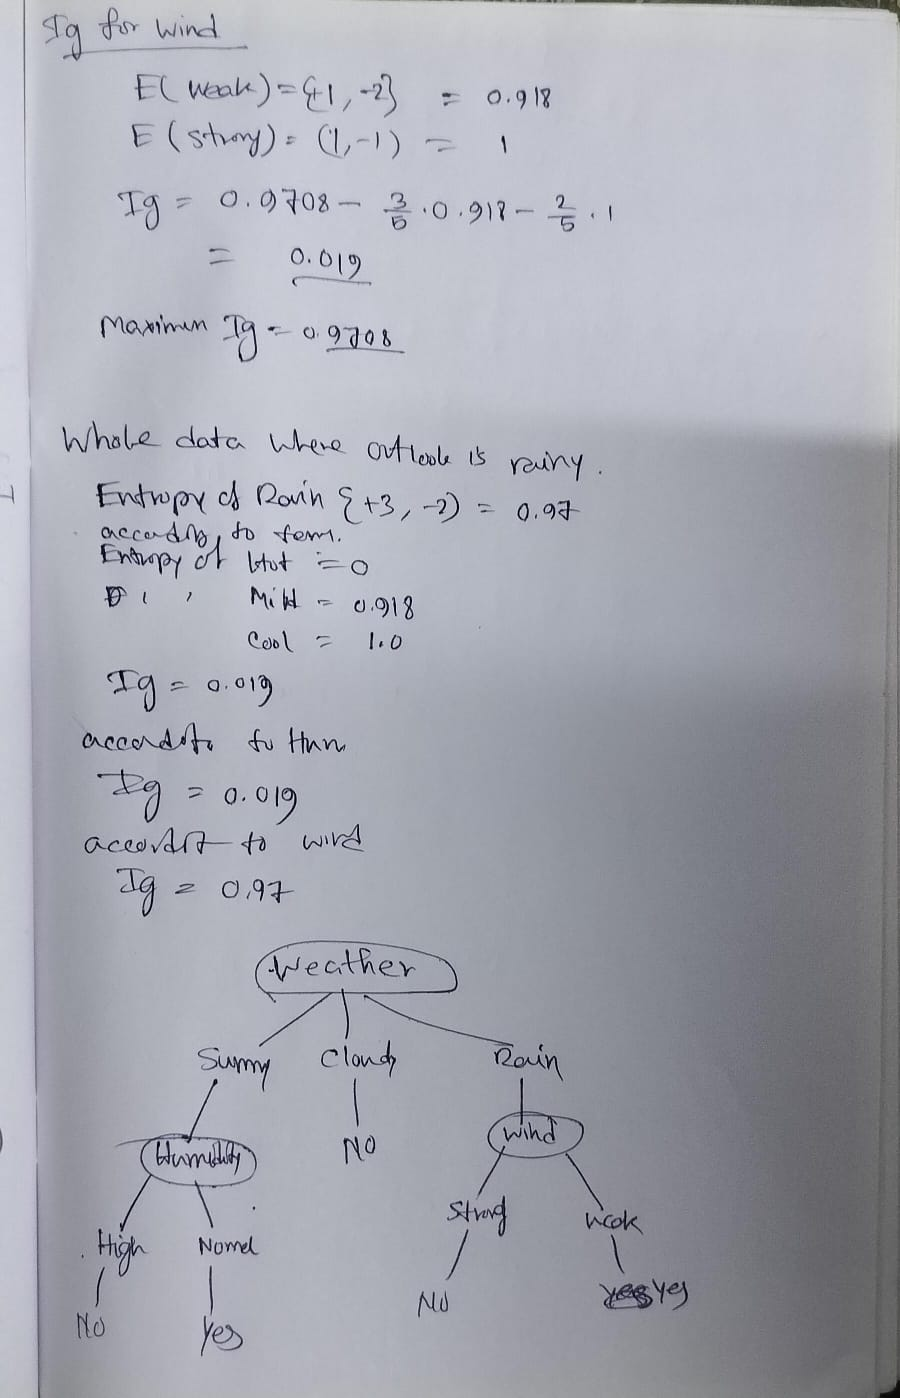 Ig for wind
E( weak) = {+1, -2} = 0.918
E (strong) = (1, -1) = 1
Ig = 0.9708 - 3/5 . 0.918 - 2/5 . 1
= 0.019
Maximum Ig = 0.9708
Whole data where outlook is rainy.
Entropy of Rain {+3, -2) = 0.97
according to tem.
Entropy of Hot = 0
Mild = 0.918
Cool = 1.0
Ig = 0.019
to Hum
Ig = 0.019
to wind
Ig = 0.97
Weather
Sunny Cloudy Rain
Humidity NO wind
High Normal Strong weak
No Yes NO Yes